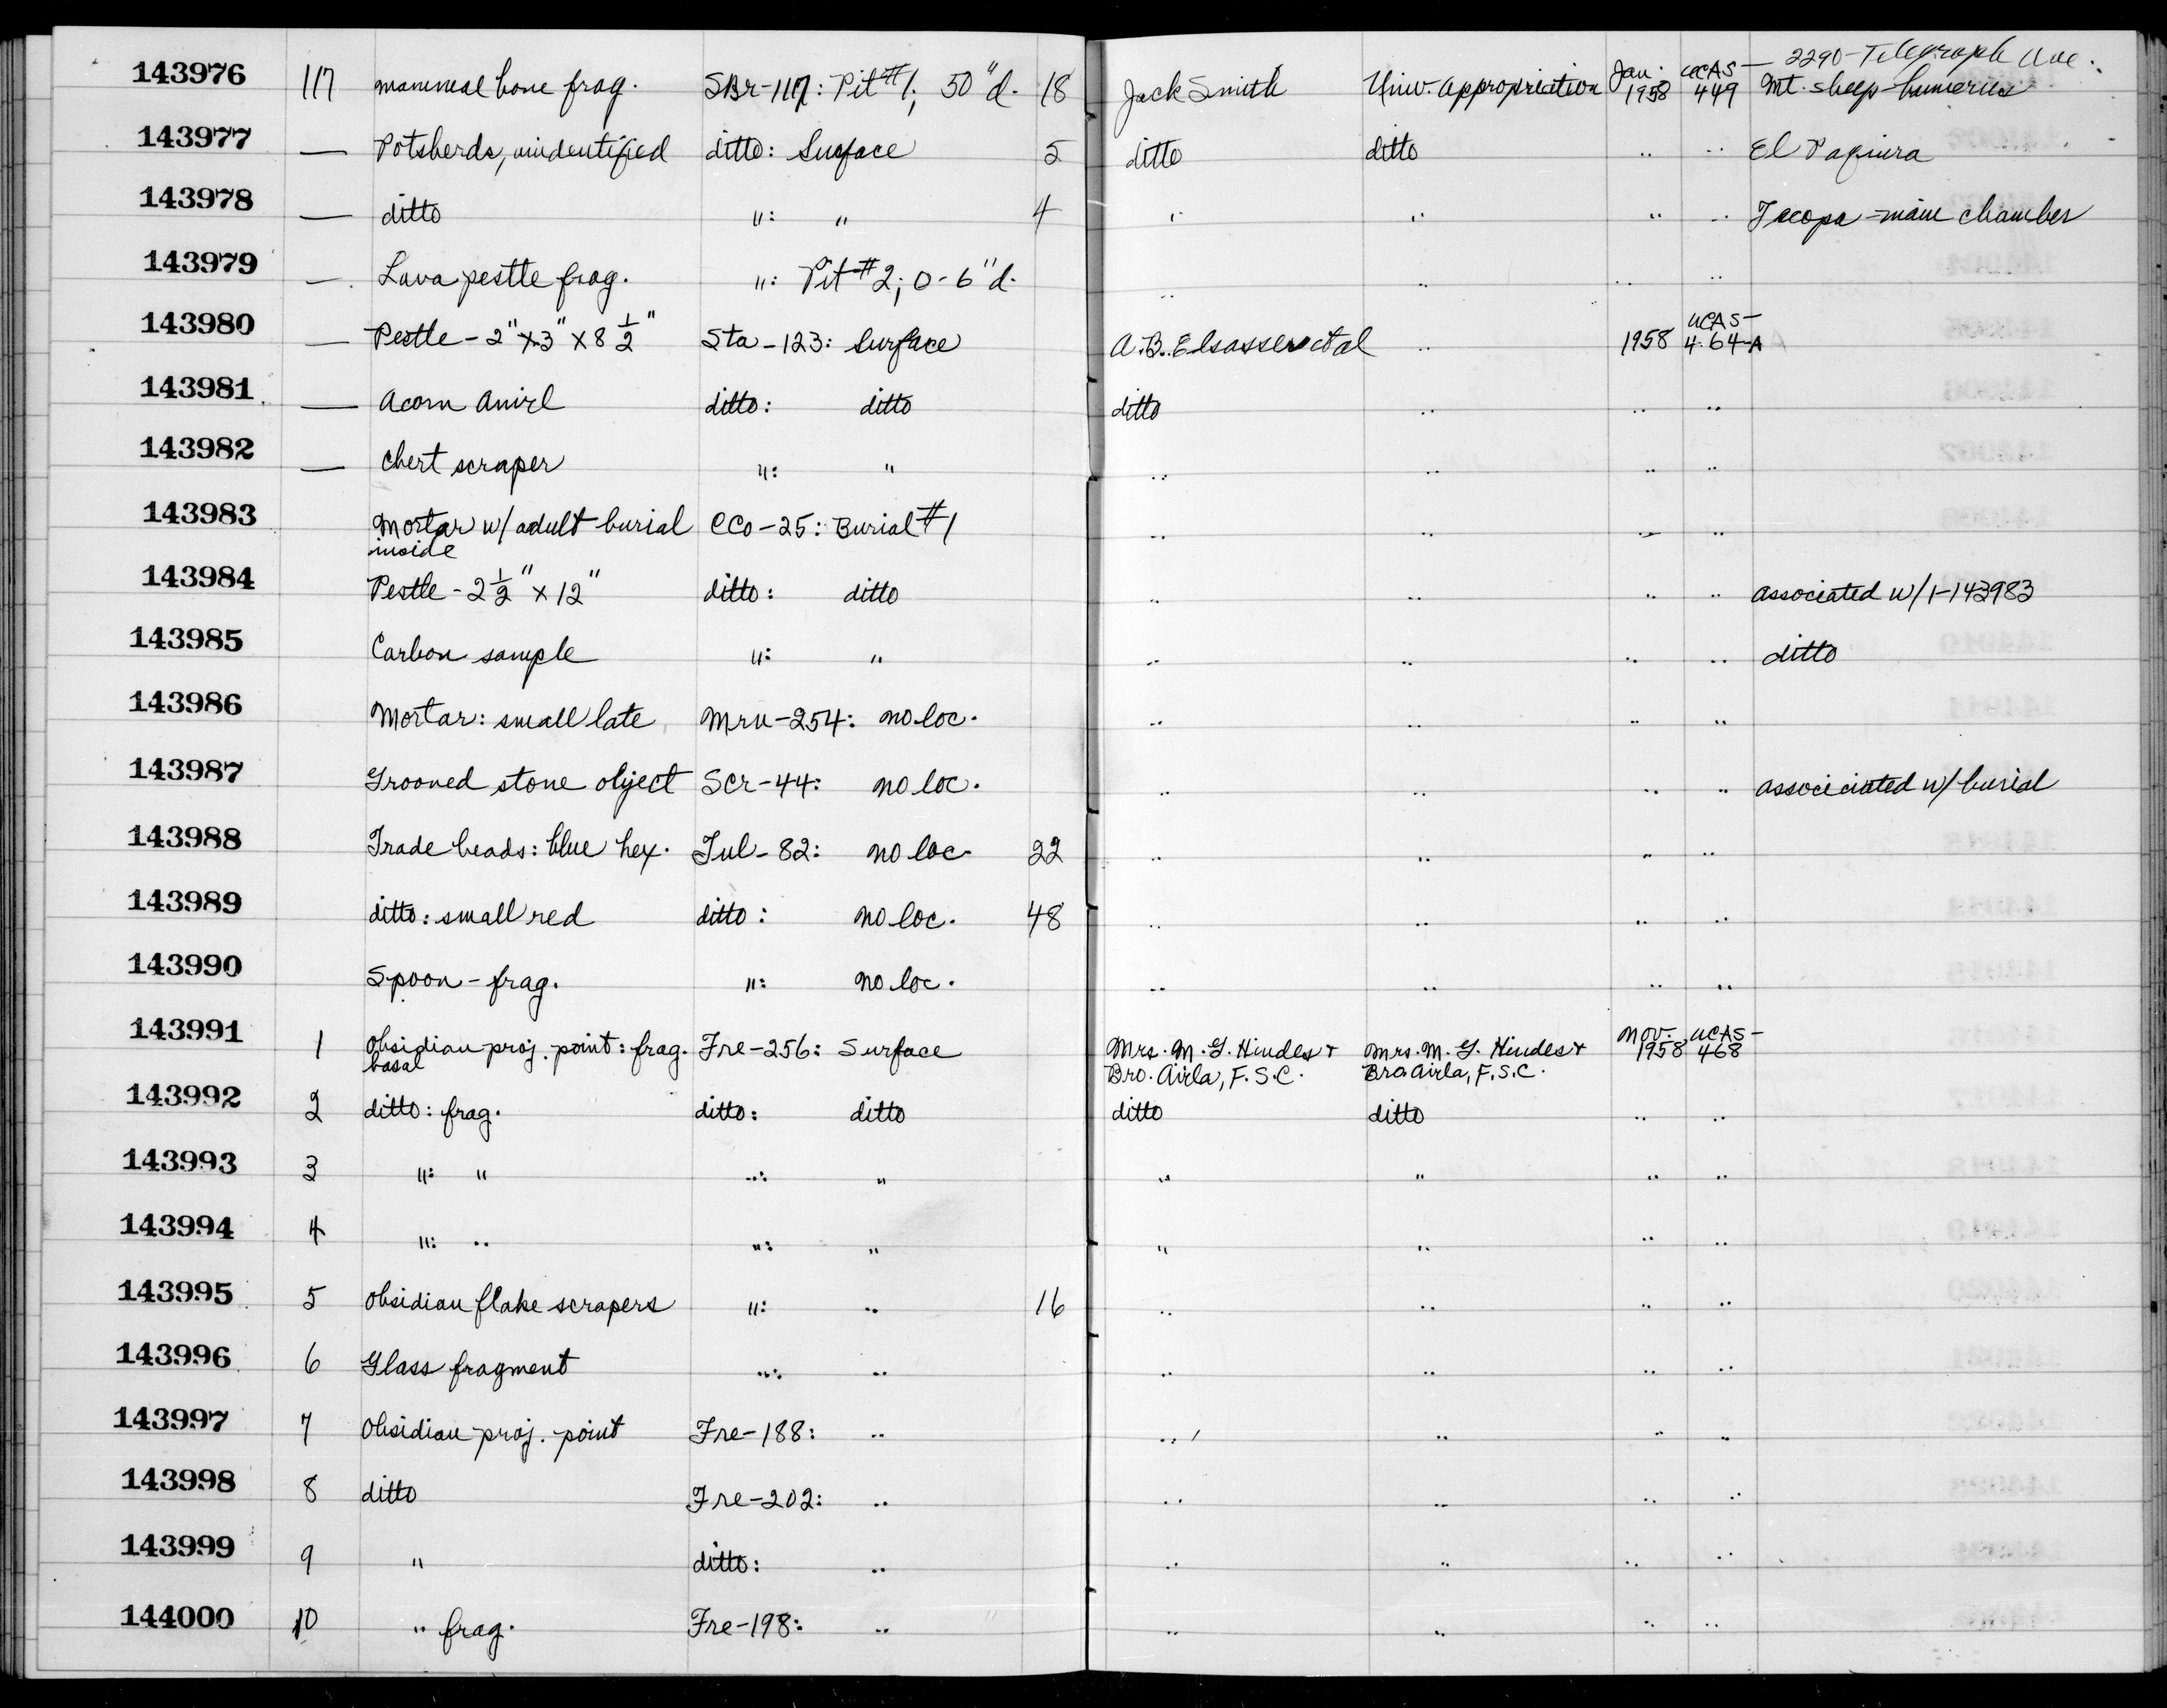 2290 - Telegraph Ave.
143976 117 mammal bone frag. SBr-117: Pit #1; 50" d. 18 Jack Smith Univ. Appropriation Jan. 1958 UCAS-449 Mt. sheep-humerus
143977 — Potsherds, unidentified ditto: Surface 5 ditto ditto " " El
143978 — ditto ": " 4 " " " " Tecopa - main chamber
143979 — Lava pestle frag. ": Pit #2; 0-6" d. " " " "
143980 — Pestle - 2" x 3" x 8 1/2" Sta-123: Surface A.B. Elsasser et al " 1958 UCAS-464-A
143981 — Acorn Anvil ditto: ditto ditto " " "
143982 — Chert scraper ": " " " " "
143983 Mortar w/ adult burial CCo-25: Burial #1 " " " "
inside
143984 Pestle - 2 1/2" x 12" ditto: ditto " " " " associated w/ 1-143983
143985 Carbon sample ": " " " " " ditto
143986 Mortar: small late Mrn-254: no loc. " " " "
143987 Grooved stone object SCr-44: no loc. " " " " associciated w/ burial
143988 Trade beads: blue hex. Tul-82: no loc. 22 " " " "
143989 ditto: small red ditto: no loc. 48 " " " "
143990 Spoon - frag. ": no loc. " " " "
143991 1 Obsidian proj. point: frag. Fre-256: Surface Mrs. M. G. Hindes + Mrs. M. G. Hindes + Nov. 1958 UCAS-468
basal Bro. Airla, F.S.C. Bro. Airla, F.S.C.
143992 2 ditto: frag. ditto: ditto ditto ditto " "
143993 3 ": " ": " " " " "
143994 4 ": " ": " " " " "
143995 5 Obsidian flake scrapers ": " 16 " " " "
143996 6 Glass fragment ": " " " " "
143997 7 Obsidian proj. point Fre-188: " " " " "
143998 8 ditto Fre-202: " " " " "
143999 9 " ditto: " " " " "
144000 10 " frag. Fre-198: " " " " "